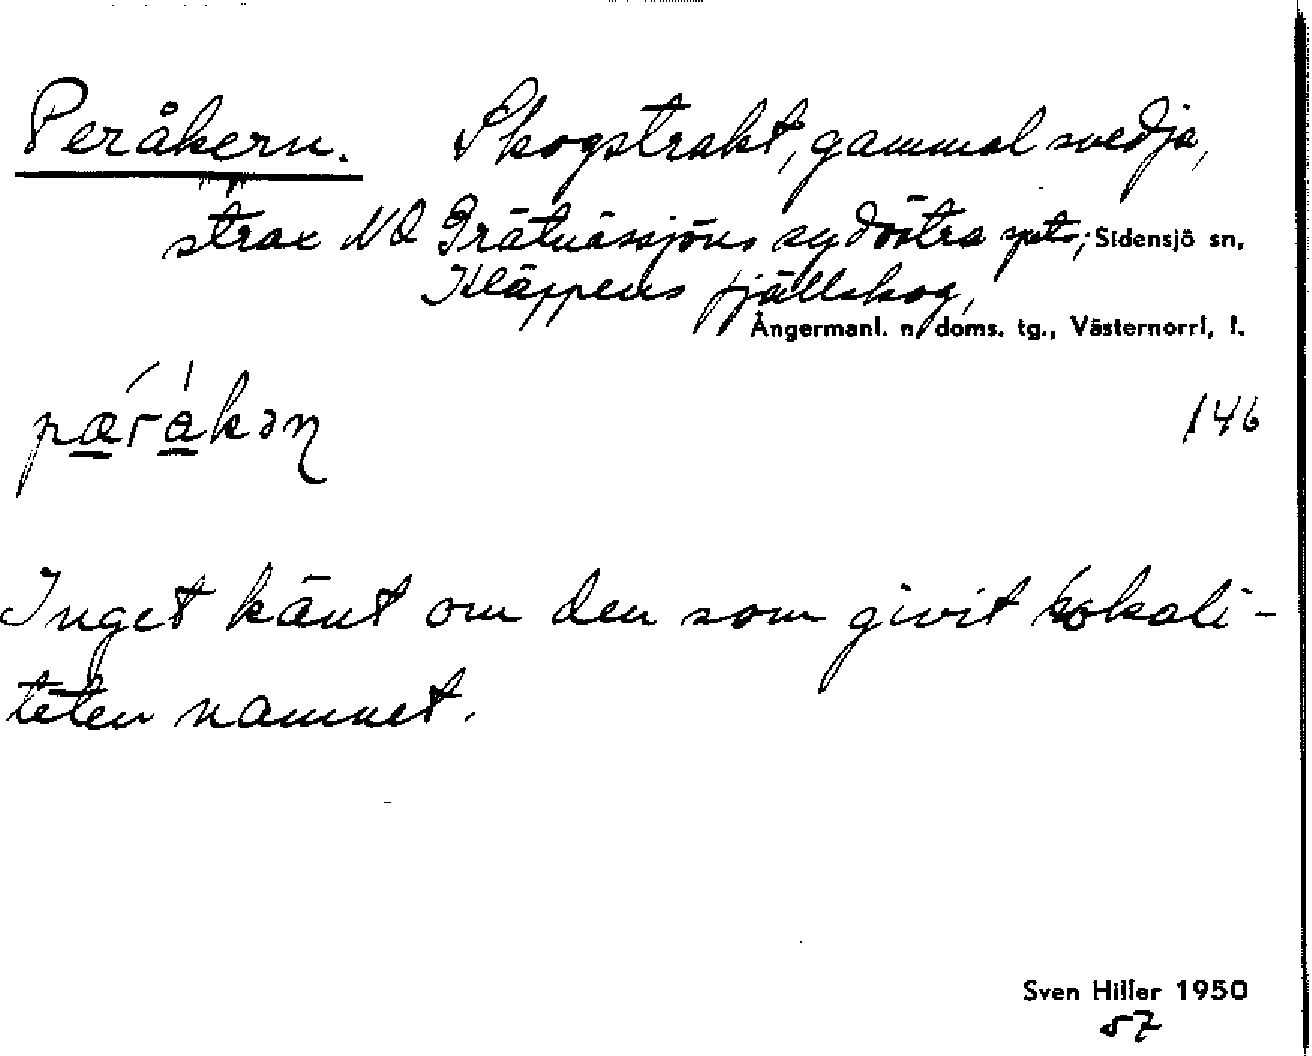 Peråkern. Skogstrakt, gammal svedja,
strax NO Trätnässjöns sydöstra spets, Sidensjö sn.
Kläppens fjällskog,
Ångermanl. n. doms. tg., Västernorrl. l.
pæråkəɳ
146
Inget känt om den som givit lokali-
teten namnet.
Sven Hiller 1950
57